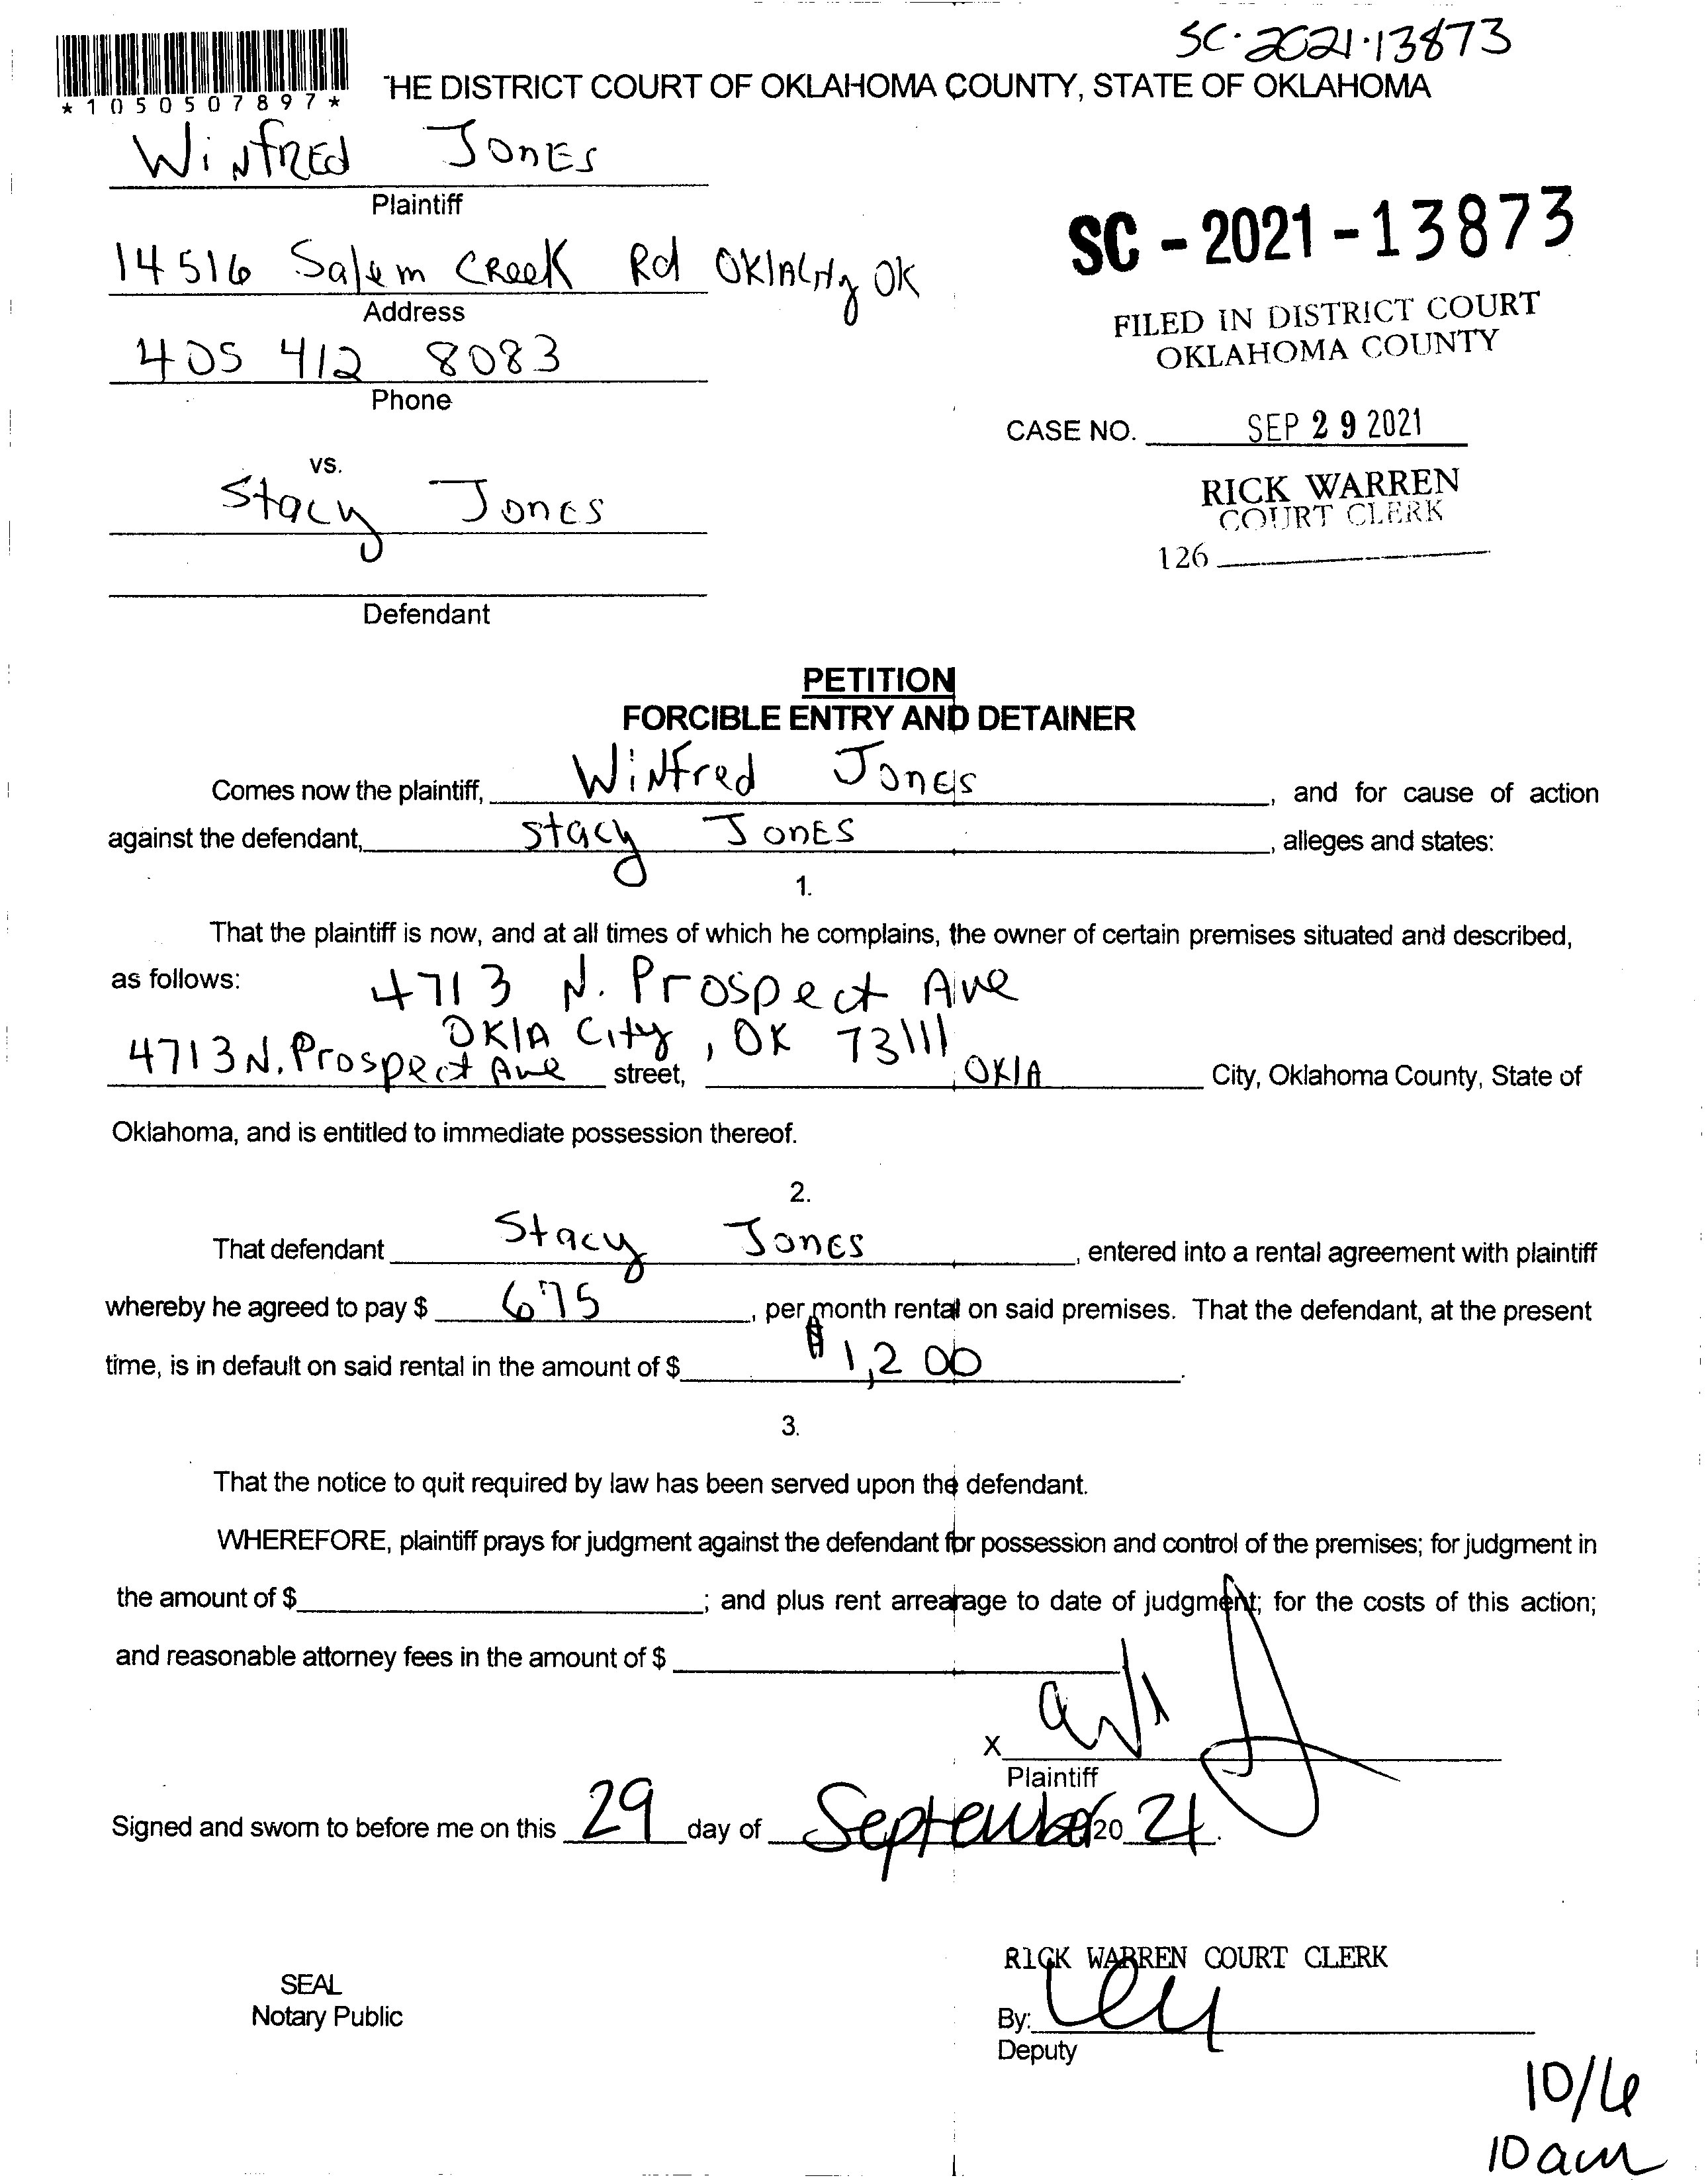 SC-2021-13873
*1050507897*
THE DISTRICT COURT OF OKLAHOMA COUNTY, STATE OF OKLAHOMA
Winfred Jones
Plaintiff
SC-2021-13873
14516 Salem Creek Rd OklaCity OK
Address
FILED IN DISTRICT COURT
OKLAHOMA COUNTY
405 412 8083
Phone
CASE NO. SEP 29 2021
vs.
RICK WARREN
COURT CLERK
Stacy Jones
126
Defendant
PETITION
FORCIBLE ENTRY AND DETAINER
Comes now the plaintiff, Winfred Jones, and for cause of action
against the defendant, Stacy Jones, alleges and states:
1.
That the plaintiff is now, and at all times of which he complains, the owner of certain premises situated and described,
as follows: 4713 N. Prospect Ave
Okla City, OK 73111
4713 N. Prospect Ave street, Okla City, Oklahoma County, State of
Oklahoma, and is entitled to immediate possession thereof.
2.
That defendant Stacy Jones, entered into a rental agreement with plaintiff
whereby he agreed to pay $ 675, per month rental on said premises. That the defendant, at the present
time, is in default on said rental in the amount of $ $1,200.
3.
That the notice to quit required by law has been served upon the defendant.
WHEREFORE, plaintiff prays for judgment against the defendant for possession and control of the premises; for judgment in
the amount of $; and plus rent arrearage to date of judgment; for the costs of this action;
and reasonable attorney fees in the amount of $
X
Plaintiff
Signed and sworn to before me on this 29 day of September 20 21.
RICK WARREN COURT CLERK
SEAL
Notary Public
By:
Deputy
10/6
10am